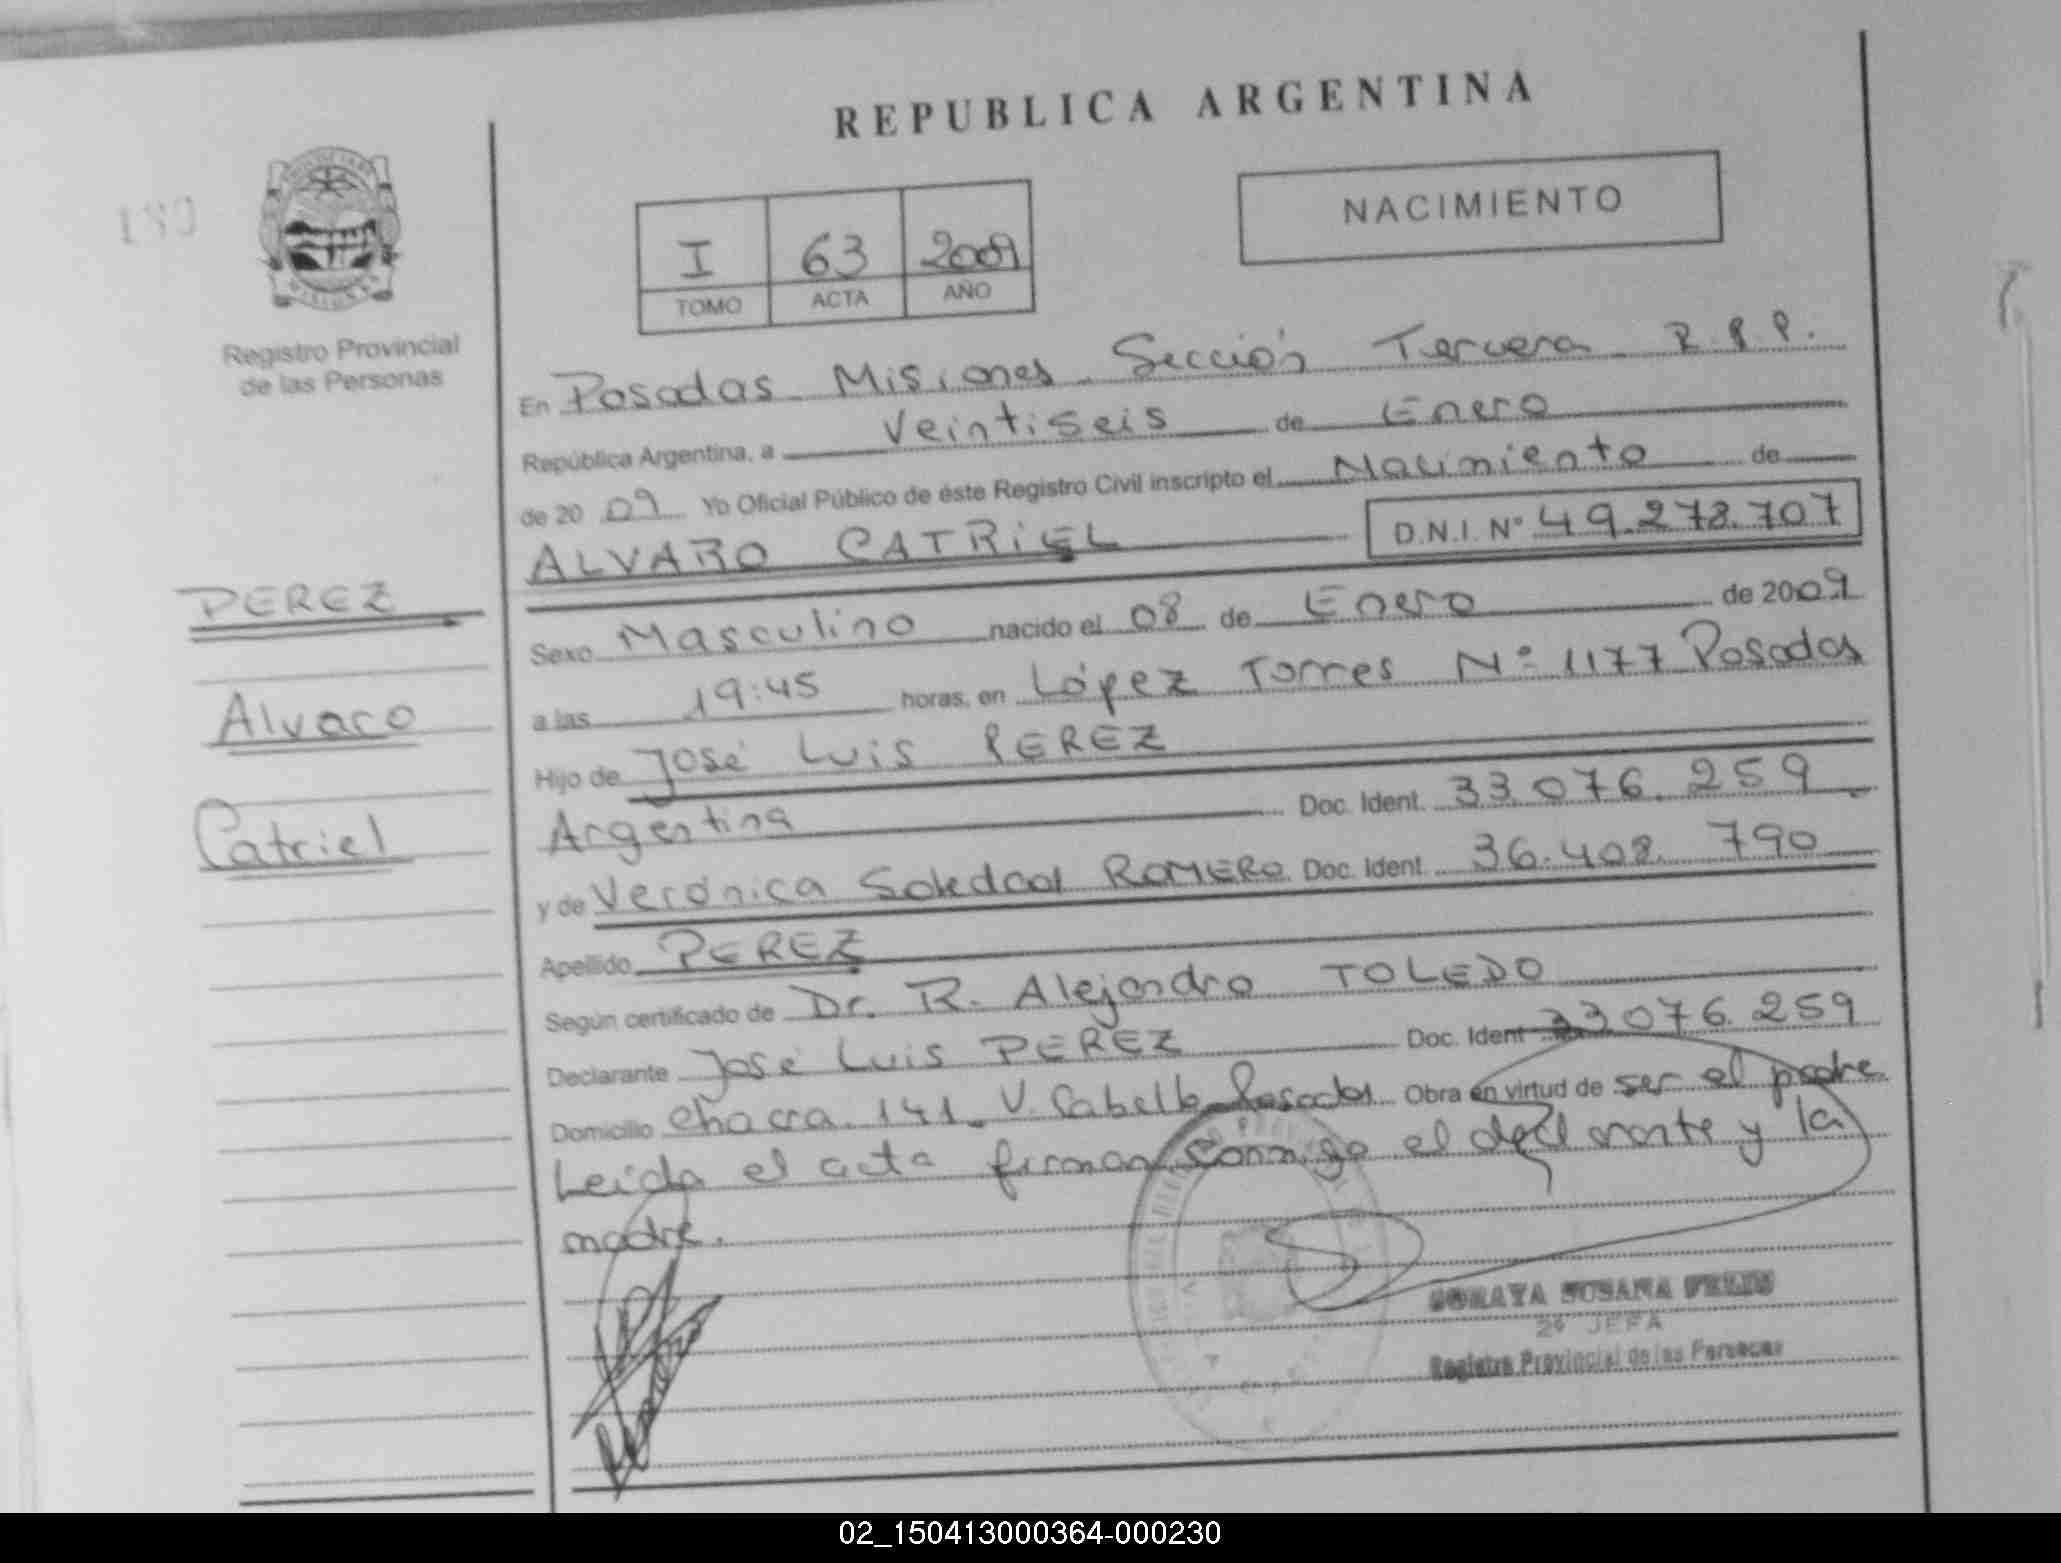 REPUBLICA ARGENTINA
180
NACIMIENTO
I 63 2009
TOMO ACTA AÑO
Registro Provincial
de las Personas
En Posadas Misiones Sección Tercera R.P.P.
República Argentina, a Veintiseis de Enero
de 2009 Yo Oficial Público de éste Registro Civil inscripto el Nacimiento de
ALVARO CATRIEL D.N.I. Nº 49.278.707
PEREZ
Alvaro
Catriel
Sexo Masculino nacido el 08 de Enero de 2009
a las 19:45 horas, en López Torres Nº 1177 Posadas
Hijo de José Luis PEREZ
Argentina Doc. Ident. 33.076.259
y de Verónica Soledad ROMERO Doc. Ident. 36.408.790
Apellido PEREZ
Según certificado de Dr. R. Alejandro TOLEDO
Declarante José Luis PEREZ Doc. Ident 33076.259
Domicilio Chacra 141 V. Cabello Posadas Obra en virtud de ser el padre
Leida el acta firman conmigo el declarante y la
madre.
SORAYA SUSANA
2º JEFA
Registro Provincial de las Personas
02_150413000364-000230